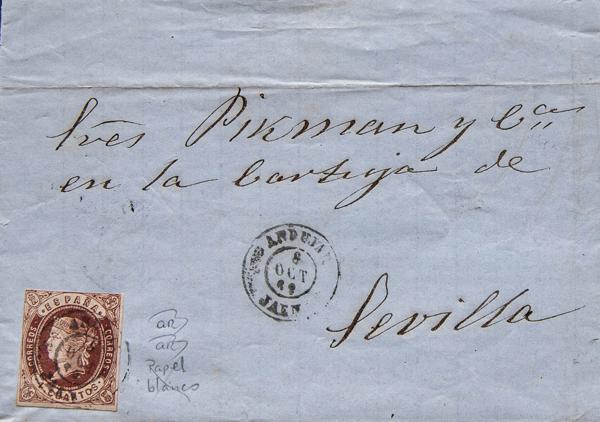 Sres Pikman y Cª
en la Cartuja de
Sevilla
ANDUJAR
6
OCT
JAEN
ESPAÑA
CORREOS
CORREOS
4 CUARTOS
Papel
blanco